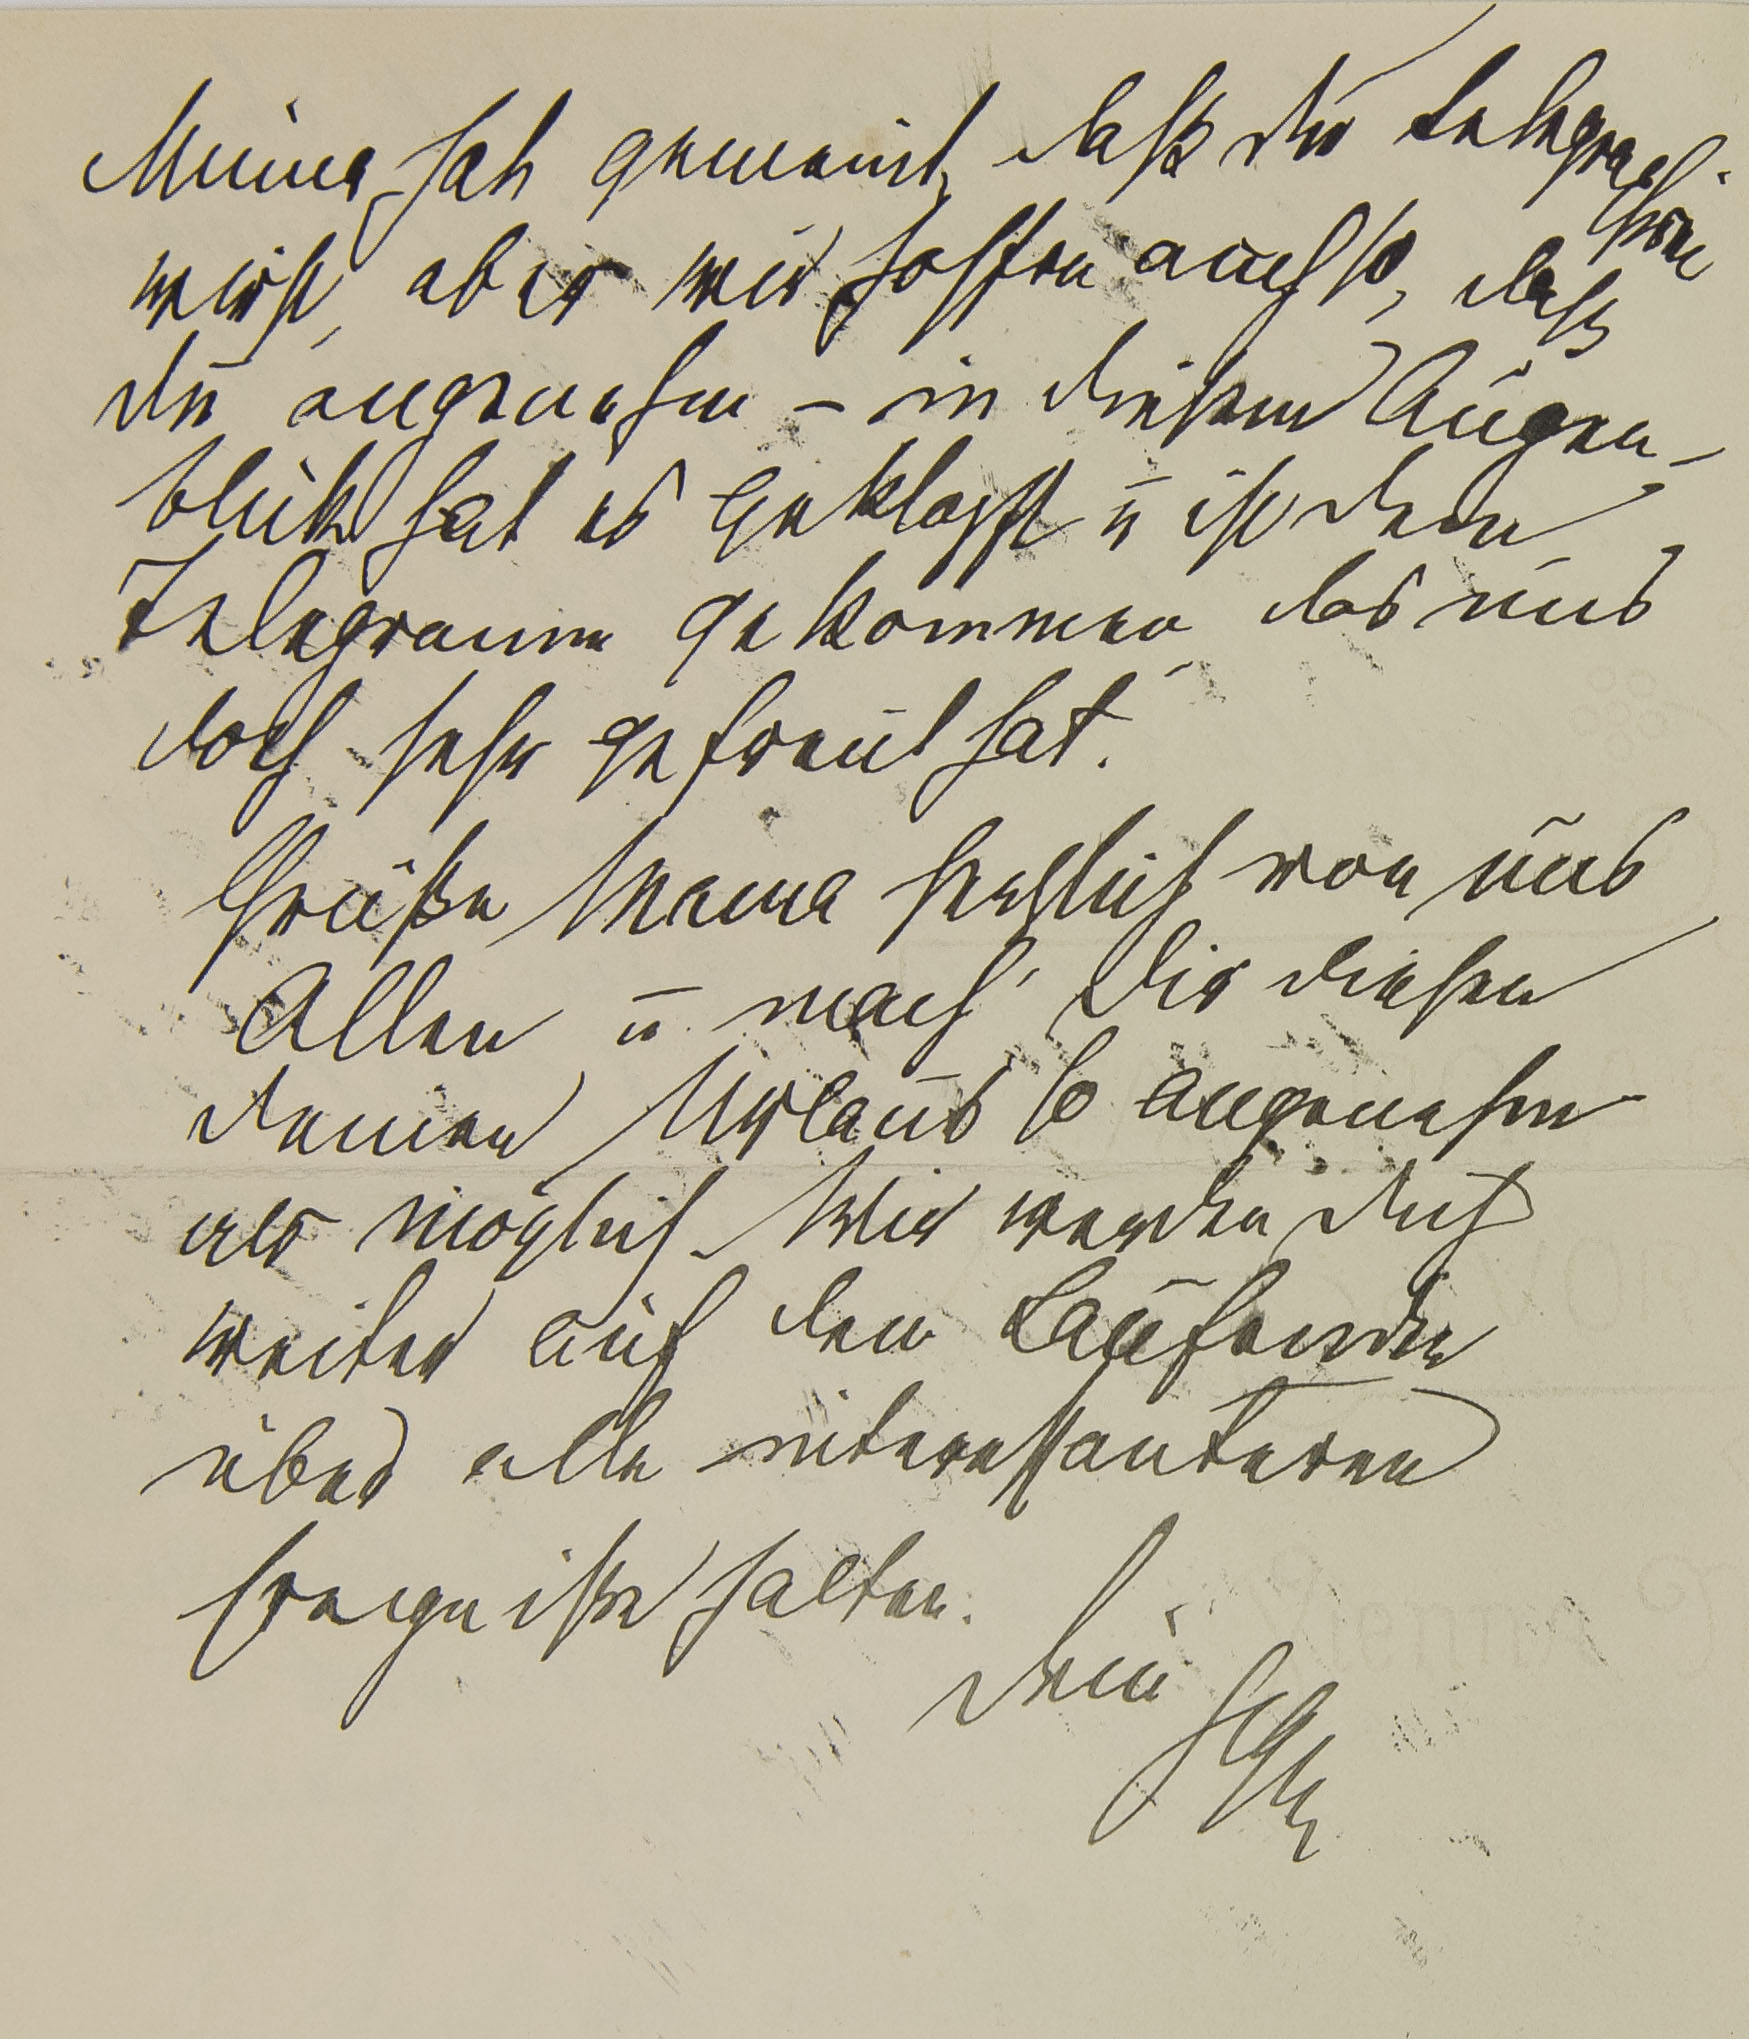 Minna hat gemeint, daß du telegraphiren
wirst, aber wir hoffen auch so, daß
du angenehm – in diesem Augen-
blick hat es geklopft u ist dein
Telegramm gekommen, das uns
doch sehr gefreut hat.
Grüße Mama herzlich von uns
Allen u mach' Dir diesen
deinen Urlaub so angenehm
als möglich. Wir werden dich
weiter auf dem Laufenden
über alle interessanteren
Ereignisse halten.
Dein